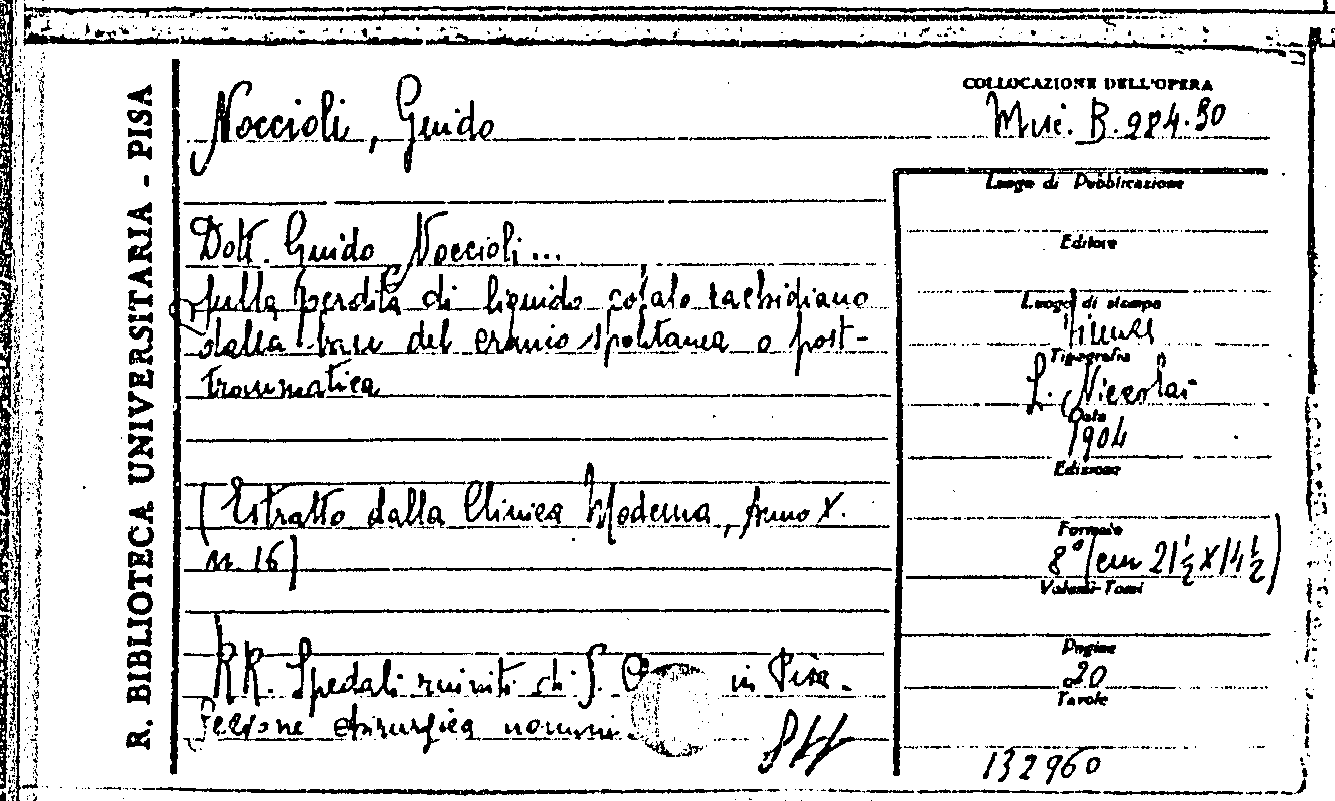 R. BIBLIOTECA UNIVERSITARIA - PISA
Noccioli, Guido
Dott. Guido Noccioli...
Sulla perdita di liquido cefalo rachidiano
dalla base del cranio spontanea o post-
traumatica
(Estratto dalla Clinica Moderna, Anno X.
n. 16)
RR. Spedali riuniti di S. in Pisa.
Sezione chirurgica
COLLOCAZIONE DELL'OPERA
Misc. B. 984.30
Luogo di Pubblicazione
Editore
Luogo di stampa
Firenze
Tipografia
L. Niccolai
Data
1904
Edizione
Formato
8° (cm 21½ x 14½)
Volumi-Tomi
Pagine
20
Tavole
132960